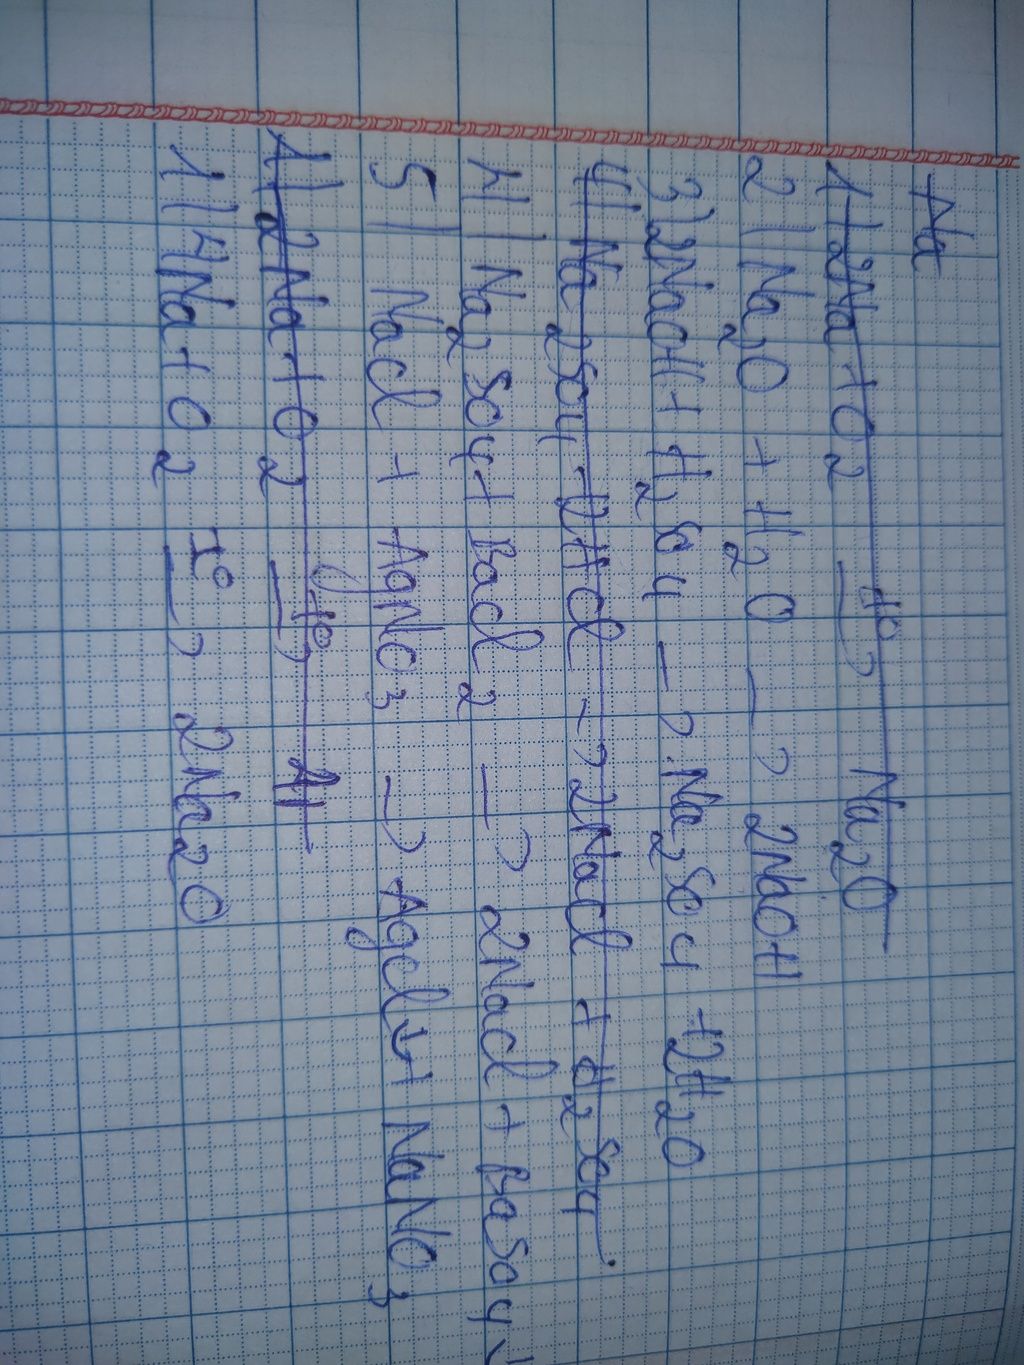 Na
1) 2Na + O2 —t°→ Na2O
2) Na2O + H2O —> 2NaOH
3) 2NaOH + H2SO4 —> Na2SO4 + 2H2O
4) Na2SO4 + 2HCl -> 2NaCl + H2SO4
4) Na2SO4 + BaCl2 —> 2NaCl + BaSO4↓
5) NaCl + AgNO3 —> AgCl↓ + NaNO3
1) 2Na + O2 —t°→
1) 4Na + O2 —t°→ 2Na2O